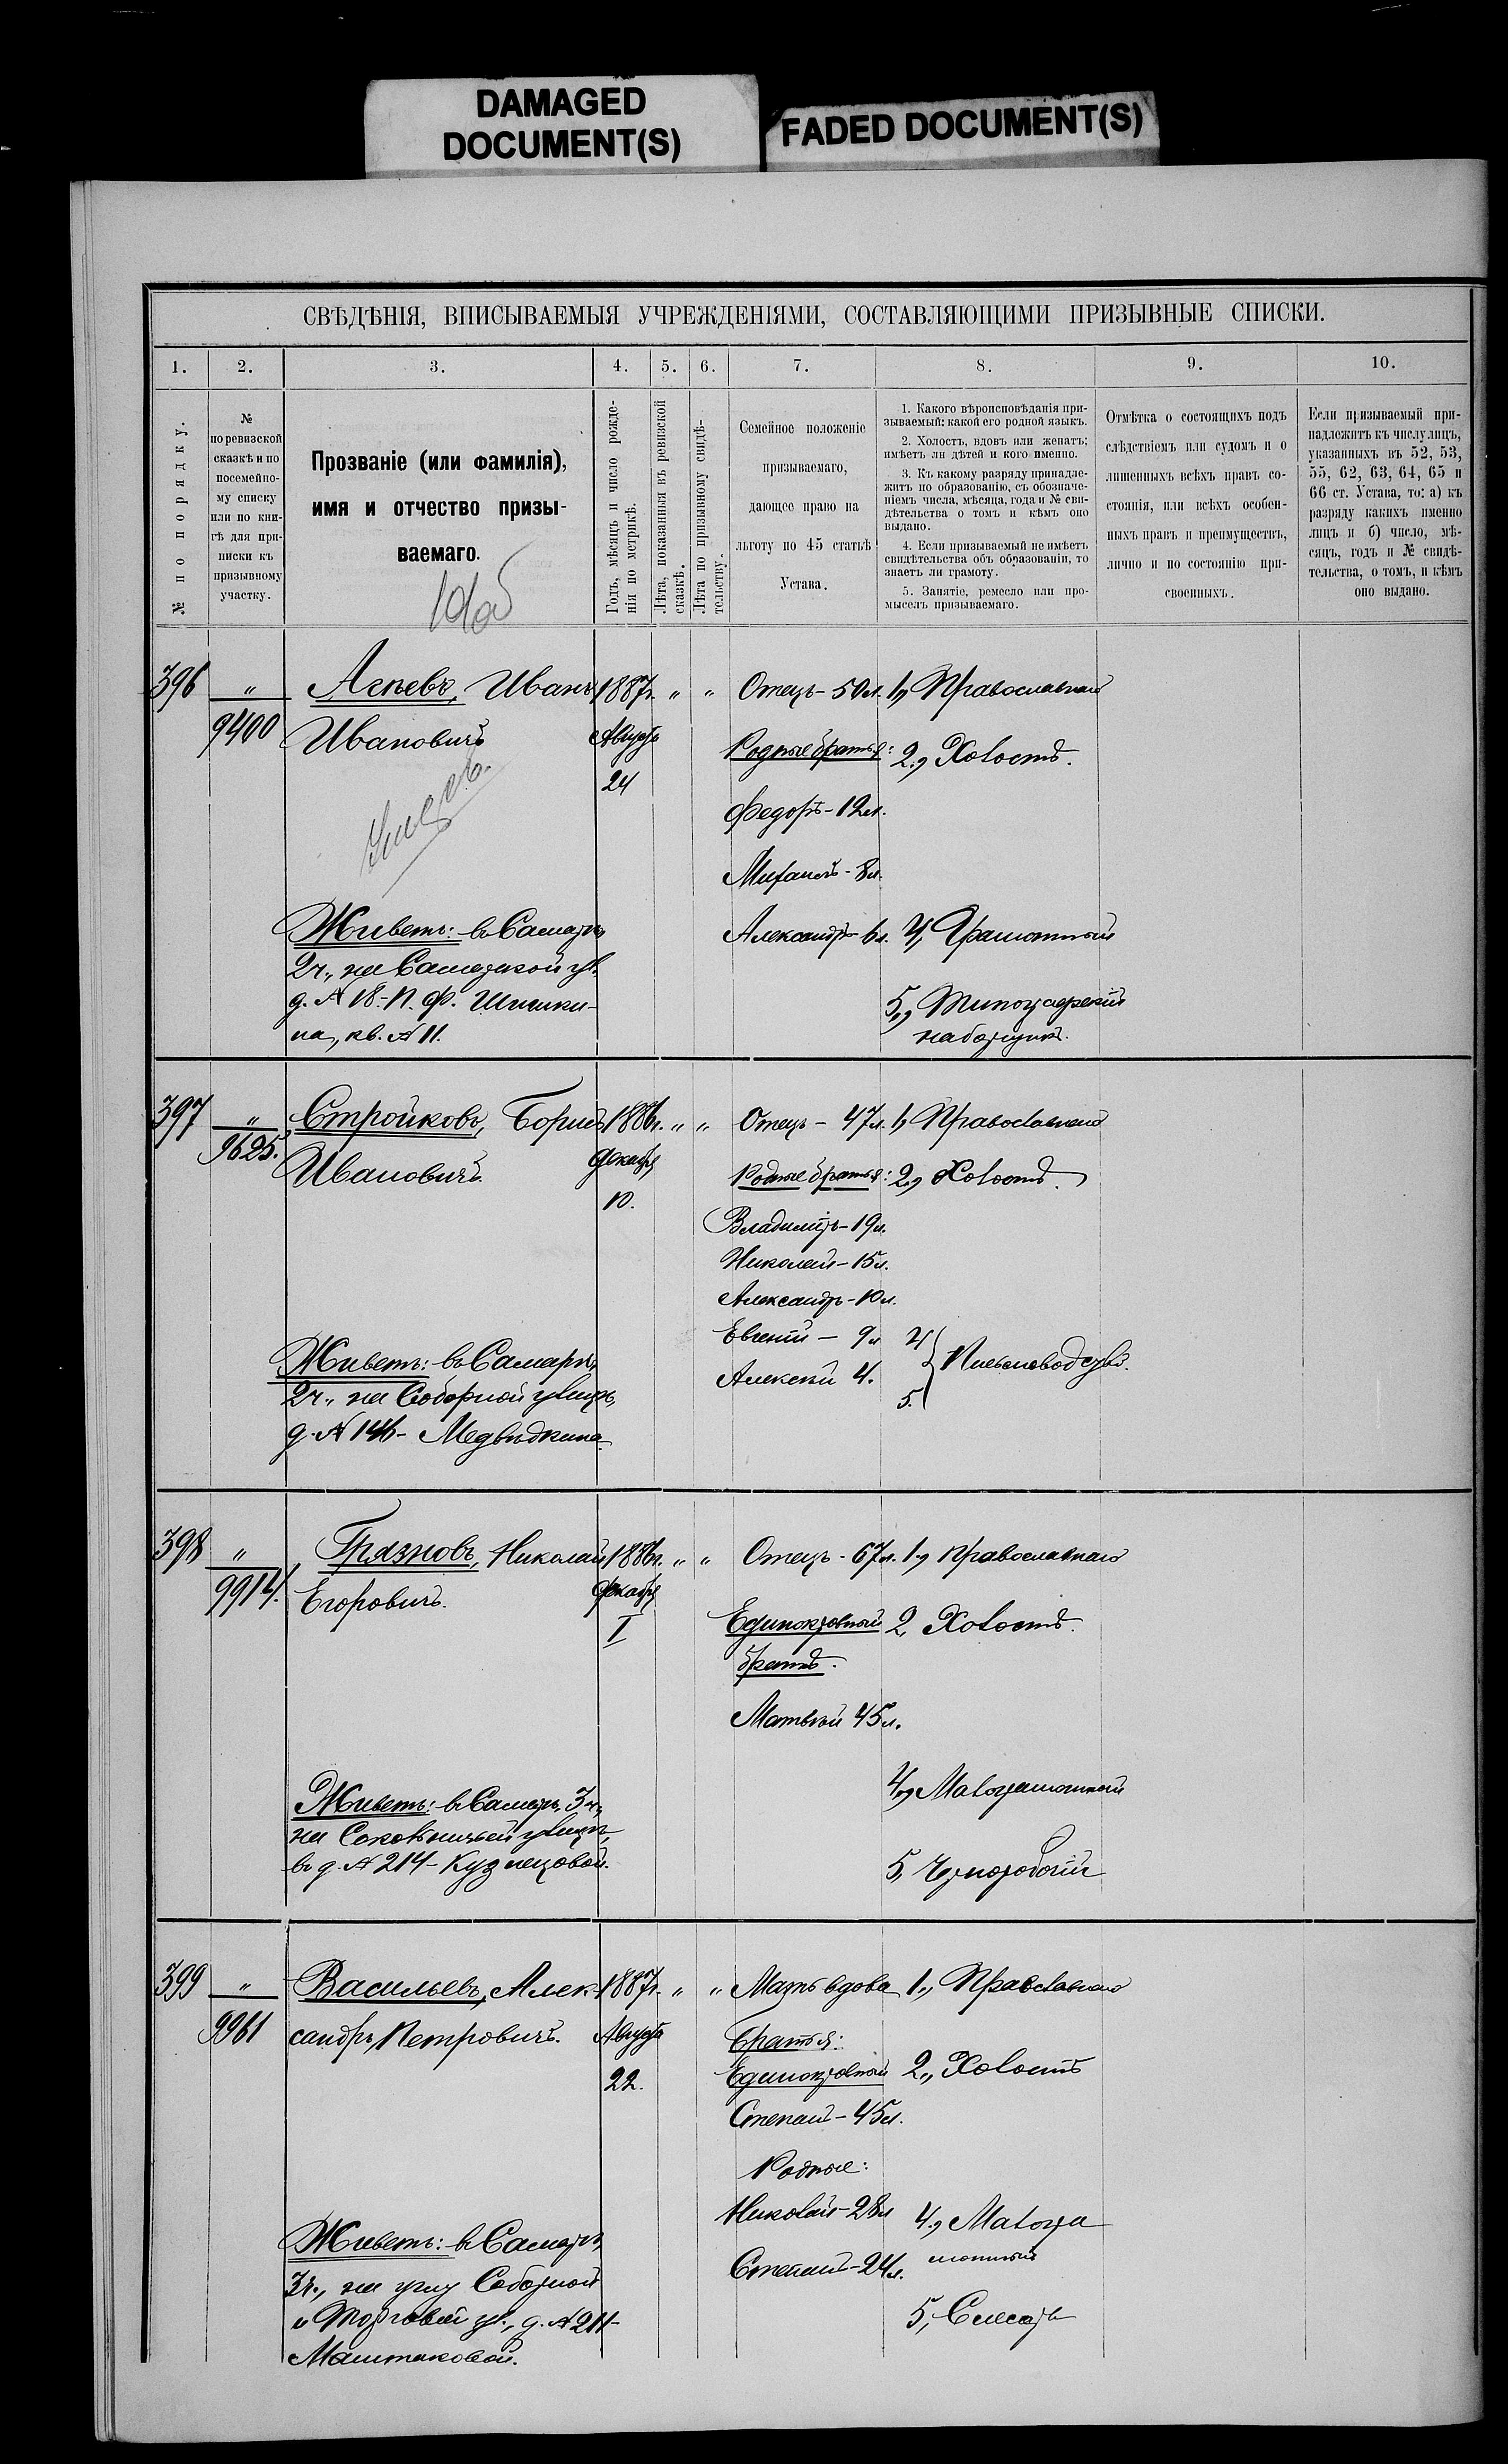 DAMAGED
DOCUMENT(S)
FADED DOCUMENT(S)
СВѢДѢНІЯ, ВПИСЫВАЕМЫЯ УЧРЕЖДЕНІЯМИ, СОСТАВЛЯЮЩИМИ ПРИЗЫВНЫЕ СПИСКИ.
1. 2. 3. 4. 5. 6. 7. 8. 9. 10.
№ по порядку.
№
по ревизской
сказкѣ и по
посемейно-
му списку
или по кни-
гѣ для при-
писки къ
призывному
участку.
Прозваніе (или фамилія),
имя и отчество призы-
ваемаго.
Годъ, мѣсяцъ и число рожде-
нія по метрикѣ.
Лѣта, показанныя въ ревизской
сказкѣ.
Лѣта по призывному свидѣ-
тельству.
Семейное положеніе
призываемаго,
дающее право на
льготу по 45 статьѣ
Устава.
1. Какого вѣроисповѣданія при-
зываемый: какой его родной языкъ.
2. Холостъ, вдовъ или женатъ:
имѣетъ ли дѣтей и кого именно.
3. Къ какому разряду принадле-
житъ по образованію, съ обозначе-
ніемъ числа, мѣсяца, года и № сви-
дѣтельства о томъ и кѣмъ оно
выдано.
4. Если призываемый не имѣетъ
свидѣтельства объ образованіи, то
знаетъ ли грамоту.
5. Занятіе, ремесло или про-
мыселъ призываемаго.
Отмѣтка о состоящихъ подъ
слѣдствіемъ или судомъ и о
лишенныхъ всѣхъ правъ со-
стоянія, или всѣхъ особен-
ныхъ правъ и преимуществъ,
лично и по состоянію при-
своенныхъ.
Если призываемый при-
надлежитъ къ числу лицъ,
указанныхъ въ 52, 53,
55, 62, 63, 64, 65 и
66 ст. Устава, то: а) къ
разряду какихъ именно
лицъ и б) число, мѣ-
сяцъ, годъ и № свидѣ-
тельства, о томъ, и кѣмъ
оно выдано.
396 " Агѣевъ, Иванъ 1887г. " " Отецъ - 50л. 1, Православнаго
9400 Ивановичъ Августа
24
Родные братья: 2, Холостъ.
Федоръ - 12л.
Михаилъ - 8л.
Живетъ: въ Самарѣ, Александръ 6л. 4, Грамотный
2ч., на Самарской ул.
д. № 18 - П. Ф. Шишки-
на, кв. № 11.
5, Типографскій
наборщикъ.
397 " Стройковъ, Борисъ 1886г. " " Отецъ - 47л. 1, Православнаго
9625. Ивановичъ. Декабря
10.
Родные братья: 2, Холостъ.
Владиміръ - 19л.
Николай - 15л.
Александръ - 10л.
Евгеній - 9л 4
Алексѣй 4. 5. Письмоводство.
Живетъ: въ Самарѣ,
2ч., на Соборной улицѣ,
д. № 146 - Медвѣдкина.
398 " Грязновъ, Николай 1886г. " " Отецъ - 67л. 1, Православнаго
9914. Егоровичъ. Декабря
1
Единокровный 2, Холостъ.
братъ.
Матвѣй 45л.
4, Малограмотный
Живетъ: въ Самарѣ, 3ч.,
на Соковничьей улицѣ,
въ д. № 214 - Кузнецовой.
5, Чернорабочій
399 " Васильевъ, Алек- 1887г. " " Мать вдова 1, Православнаго
9961 сандръ Петровичъ. Августа
22.
Братья:
Единокровный 2, Холостъ
Степанъ - 45л.
Родные:
Николай - 28л 4, Малогра
мотный
Степанъ - 24л.
5, Слесарь
Живетъ: въ Самарѣ,
3ч., на углу Соборной
и Торговой ул., д. № 211 -
Маштаковой.